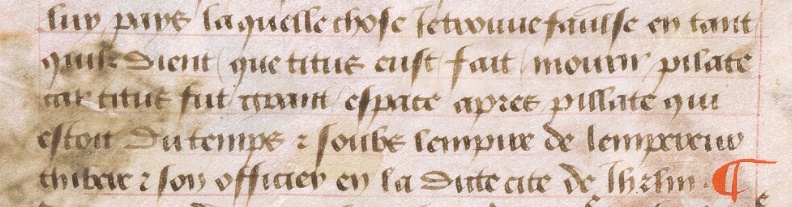 luy pays laquelle chose Je trouve faulse en tant
quilz dient que titus eust fait mourir pilate
car titus fut grant espace apres pillate qui
estoit du temps ⁊ soubs lempire de lempereur
thibere ⁊ son officier en la dite cite de Jhrlm · ¶